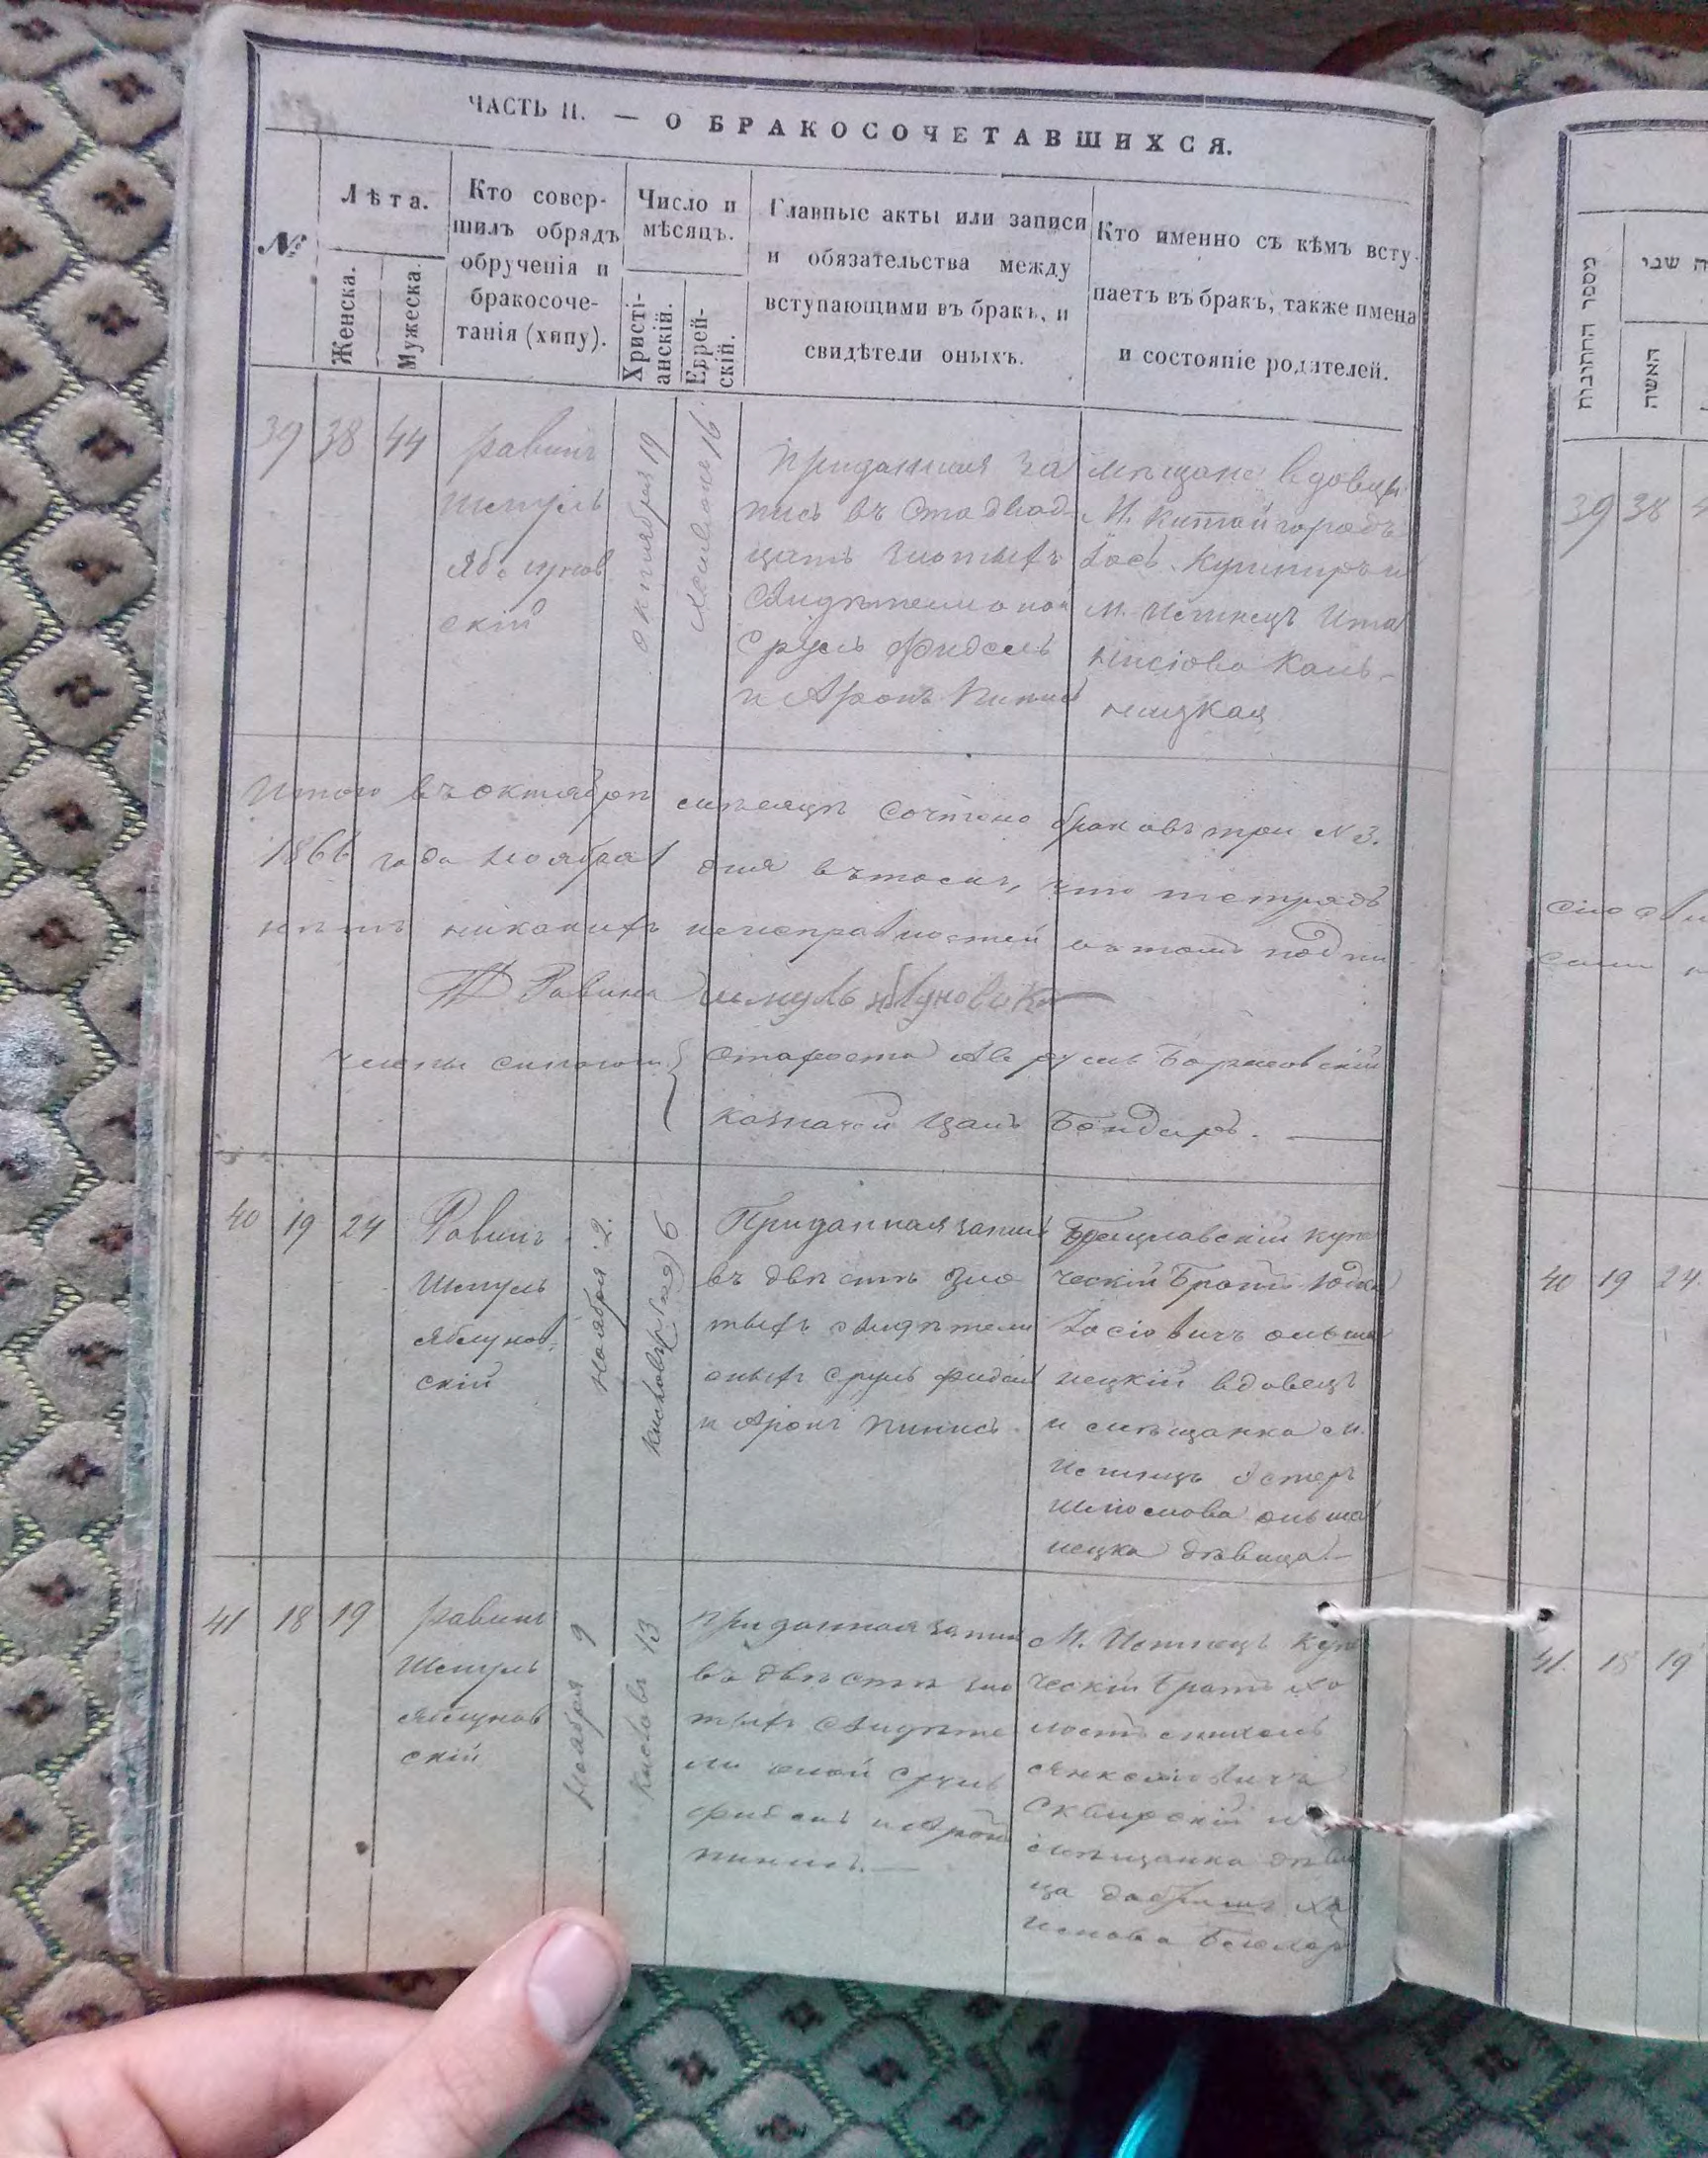 ЧАСТЬ II. — О БРАКОСОЧЕТАВШИХСЯ.
№
Лѣта.
Женска.
Мужеска.
Кто совер-
шилъ обрядъ
обрученія и
бракосоче-
танія (хипу).
Число и
мѣсяцъ.
Христі-
анскій.
Еврей-
скій.
Главные акты или записи
и обязательства между
вступающими въ бракъ, и
свидѣтели оныхъ.
Кто именно съ кѣмъ всту-
паетъ въ бракъ, также имена
и состояніе родителей.
39 38 44
равинъ
Шмуль
Яблунов
скій
октября 19
16
Приданная за
пись въ сто двад
цать злотыхъ
свидѣтели оной
Сруль Фидель
и Аронъ Пинис
мѣщане вдовцы
М. Китайгородъ
Іось Кушниръ и
М. Ильинецъ Ита
Кальницкая
Итого въ октябрѣ мѣсяцѣ сочтено браковъ три № 3.
1866 года Ноября 1 дня въ томъ, что тетрадъ
нѣтъ никакихъ неисправностей въ томъ подпи
Равина Шмуль Яблуновски
члены синагоги { Староста Аврумъ Борщовскій
казначей Бондаръ.
40 19 24
Равинъ
Шмуль
Яблунов
скій
Ноября 2.
Кислевъ 6
Приданная запись
въ двѣсти зло
тыхъ свидѣтели
оныхъ Сруль Фидель
и Аронъ Пинисъ.
Брацлавскій купе
ческій братъ Юдка
Іосіовичъ Ольша
нецкій вдовецъ
и мѣщанка м.
Ильинецъ Эстеръ
Шліомова Ольша
нецка дѣвица.
41 18 19
равинъ
Шмуль
Яблунов
скій
Ноября 9
Кислевъ 13
Приданная запись
въ двѣсти зло
тыхъ свидѣте
ли оной Сруль
Фидель и Аронъ
Пинисъ.
М. Ильинецъ купе
ческій братъ хо
лостъ
Янкеліовичъ
Сквирскій и
мѣщанка дѣви
ца
מספר החתונות
האשה
שני
39 38
40 19 24
41. 18 19